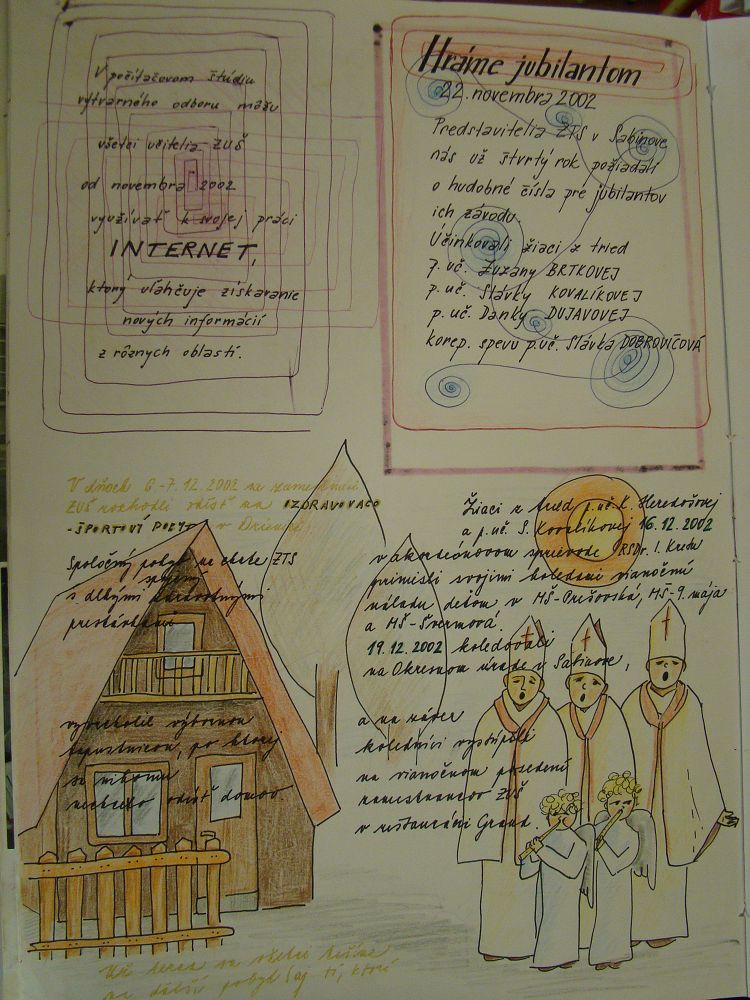 V počítačovom štúdiu
výtvarného odboru môžu
všetci učitelia ZUŠ
od novembra 2002
využívať k svojej práci
INTERNET,
ktorý uľahčuje získavanie
nových informácií
z rôznych oblastí.
Hráme jubilantom
22. novembra 2002
Predstavitelia ZTS v Sabinove
nás už štvrtý rok požiadali
o hudobné čísla pre jubilantov
ich závodu.
Účinkovali žiaci z tried
p. uč. Zuzany BRTKOVEJ
p. uč. Slávky KOVALÍKOVEJ
p. uč. Danky DUJAVOVEJ
korep. spevu p.uč. Slávka DOBROVIČOVÁ
V dňoch 6.-7.12.2002 sa
ZUŠ rozhodli odísť na OZDRAVOVACO
-ŠPORTOVÝ POBYT v
Spoločný pobyt na chate ZTS
spojený
s dlhými
prestávkami
výbornou
kapustnicou, po ktorej
sa nikomu
nechcelo odísť domov.
Už teraz sa všetci tešíme
na ďalší pobyt (aj tí, ktorí
Žiaci z tried p.uč. K. Heredošovej
a p.uč. S. Kovalíkovej 16.12.2002
v akordeónovom sprievode I. Kredu
priniesli svojimi koledami vianočnú
náladu deťom v MŠ-Prešovská, MŠ-9. mája
a MŠ-Švermová.
19.12.2002 koledovali
na Okresnom úrade v Sabinove,
a na záver
koledníci vystúpili
na vianočnom posedení
zamestnancov ZUŠ
v reštaurácii Grand.